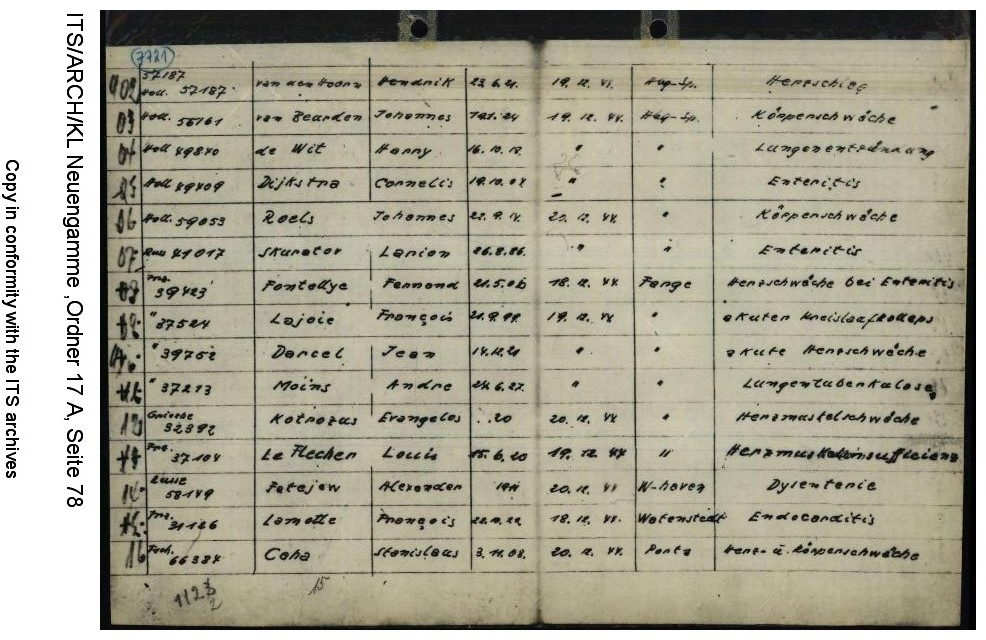 ITS/ARCH/KL Neuengamme ,Ordner 17 A, Seite 78
Copy in conformity with the ITS archives
7721
57187
Holl. 57187 van den Hoorn Hendrik 23.6.21 19.12.44. Hüg-Sp. Herzschlag
03 Holl. 56161 van Beurden Johannes 19.12.44. Hüg-Sp. Körperschwäche
Holl 49840 de Wit Harry 16.10.19. " " Lungenentzündung
05 Holl 49409 Dijkstra Cornelis 19.10.07 " " Enteritis
06 Holl. 59053 Roels Johannes 22.9.14. 20.12.44 " Körperschwäche
07 Russ 41017 Skurator Larion 26.8.86. " " Enteritis
Frz. 39423 Fontellye Fernand 21.5.06 18.12.44 Farge Herzschwäche bei Enteritis
" 37524 Lajoie François 21.9.99. 19.12.44 " akuter Kreislaufkollaps
" 39752 Darcel Jean 14.12.21 " " akute Herzschwäche
" 37213 Moins Andre 24.6.27. " " Lungentuberkulose
Grieche 32392 Kotrozus Evangelos .20 20.12.44 " Herzmuskelschwäche
Frz. 37104 Le Flecher Louis 15.6.20 19.12.44 " Herzmuskelinsufficienz
14. Russe 58149 Fetejew Alexander 20.12.44 W-haven Dysenterie
Frz. 31126 Lamotte François 18.12.44. Watenstedt Endocarditis
16 Tsch. 66384 Caha Stanislaus 3.11.08. 20.12.44. Porta Herz- u. Körperschwäche
15